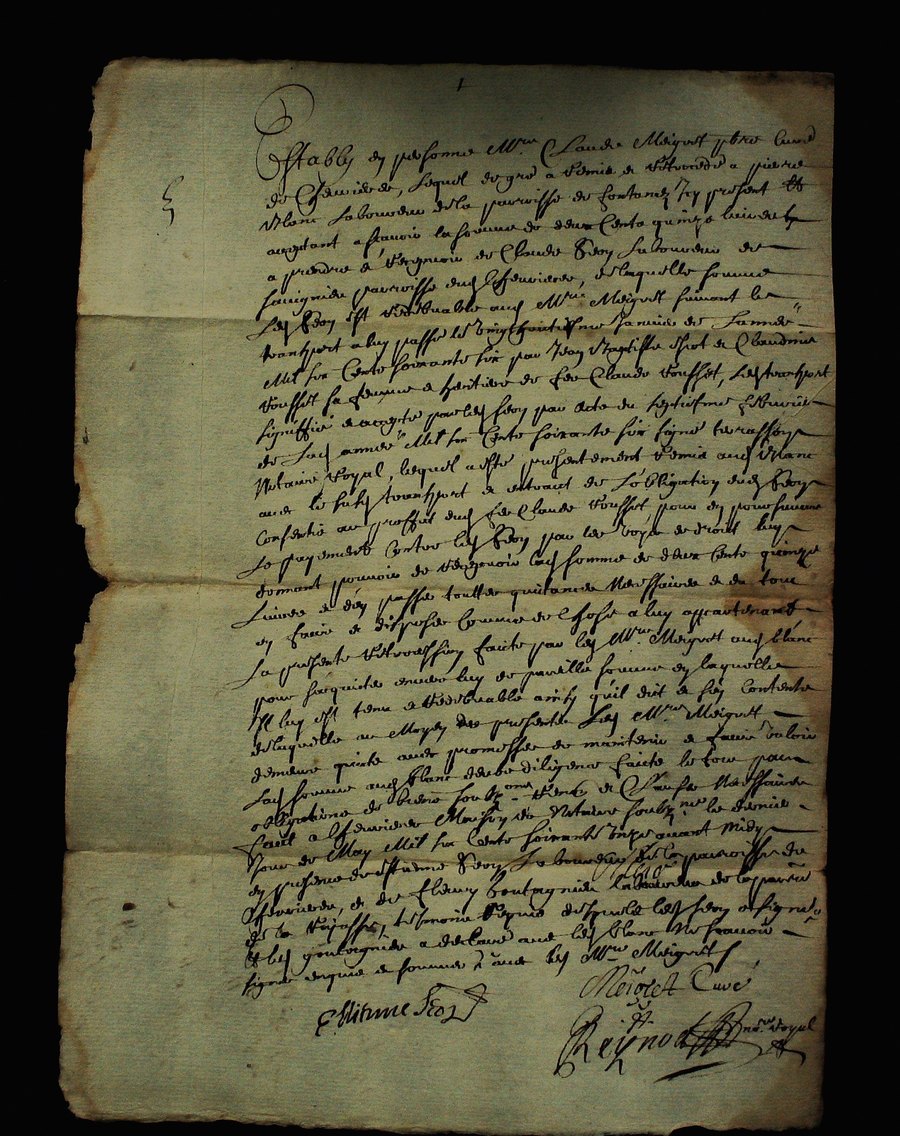 Estably en personne Mre Claude Meigret pbre Curé
de Chevrieres, Lequel de gré a Remis et Retrocedé a pierre
Blanc Laboureur de la parroisse de fontanez Icy present et
acceptant assavoir la somme de deux Cents quinze livres
a prendre et Recepvoir de Claude Seon Laboureur de
parroisse dud Chevrieres, de laquelle somme
Led Seon est Redebvable aud Mre Meigret suivant le
transport a luy passé le vingthuictiesme Janvier de Lannee
Mil six Cents soixante six par Jean Baptiste et Claudine
Rousset sa femme et heritiere de feu Claude Rousset, Led transport
signiffié et accepté par led Seon par acte du septiesme febvrier
de Lad année Mil six Cents soixante six signé
Notaire Royal, lequel a esté presentement Remis aud Blanc
avec le susd transport et extraict de Lobligation dud Seon
Consentie au proffict dud feu Claude Rousset pour en poursuivre
Le payement Contre led Seon par les voyes de droict luy
donnant pouvoir de Recepvoir lad somme de deux Cents quinze
Livres et den passer touttes quictances Necessaires et du tout
en faire et disposer Comme de Chose a luy appartenant
La presente Retrocession faicte par led Mre Meigret aud blanc
pour sacquiter envers luy de pareille somme en laquelle
Il luy est tenu et Redebvable ainsy quil dict et sen Contente
de laquelle au Moyen des presentes Led Mre Meigret
demeure quicte avec promesses de maintenir et faire valoir
Lad somme aud blanc diligence faicte le tout par
obligations de biens Renon et Clauses Necessaires
faict a Chevrieres Maison du Notaire le dernier
Jour de May Mil six Cents soixante unze avant Midy
en presence de Estienne Seon Laboureur de la parroisse de
Chevrieres, et de Fleury Gontagnier laboureur de la parre
de la Rajasse, tesmoins Requis desquels led Seon a signé
Et led gontagnier a declaré avec led blanc Ne scavoir
signer enquis et sommés avec led Mre Meigret
Meigret Curé
Estienne Seon
Reynod nore Royal